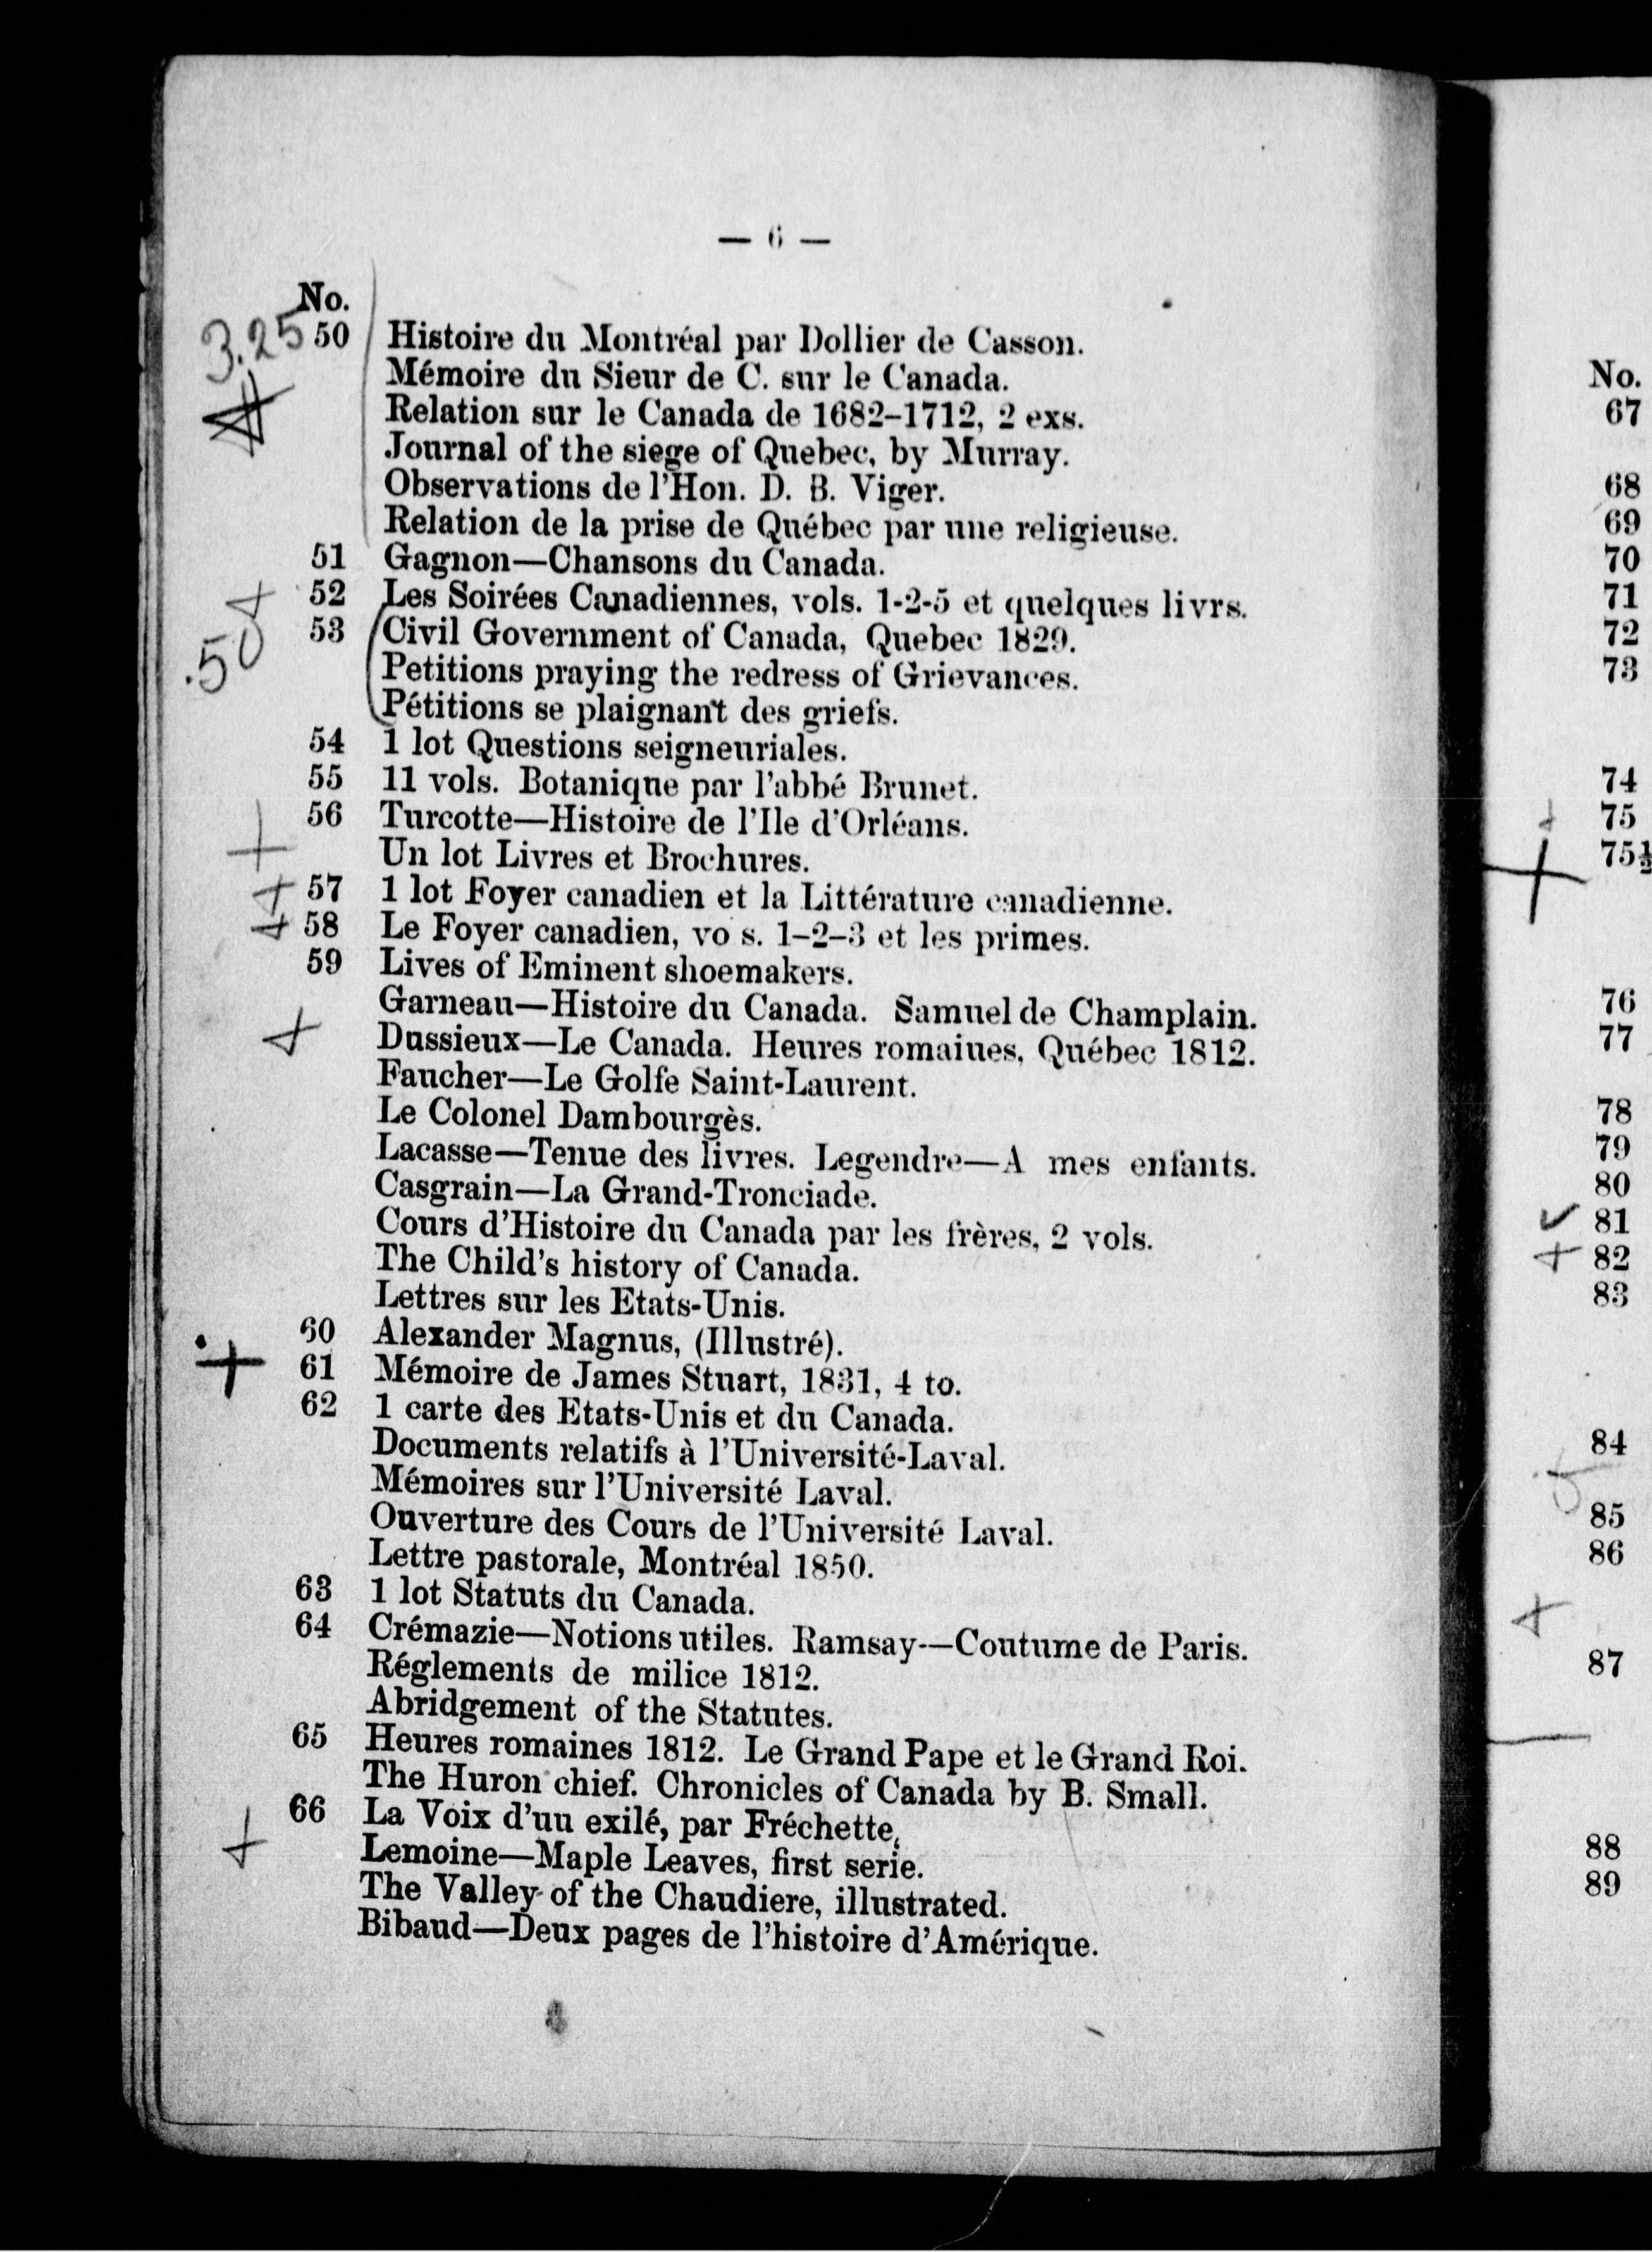 — 6 —
No.
3.25 50 Histoire du Montréal par Dollier de Casson.
Mémoire du Sieur de C. sur le Canada.
Relation sur le Canada de 1682–1712, 2 exs.
Journal of the siege of Quebec, by Murray.
Observations de l'Hon. D. B. Viger.
Relation de la prise de Québec par une religieuse.
51 Gagnon—Chansons du Canada.
52 Les Soirées Canadiennes, vols. 1-2-5 et quelques livrs.
.50 53 Civil Government of Canada, Quebec 1829.
Petitions praying the redress of Grievances.
Pétitions se plaignant des griefs.
54 1 lot Questions seigneuriales.
55 11 vols. Botanique par l'abbé Brunet.
56 Turcotte—Histoire de l'Ile d'Orléans.
Un lot Livres et Brochures.
57 1 lot Foyer canadien et la Littérature canadienne.
58 Le Foyer canadien, vo s. 1–2–3 et les primes.
59 Lives of Eminent shoemakers.
Garneau—Histoire du Canada. Samuel de Champlain.
Dussieux—Le Canada. Heures romaiues, Québec 1812.
Faucher—Le Golfe Saint-Laurent.
Le Colonel Dambourgès.
Lacasse—Tenue des livres. Legendre—A mes enfants.
Casgrain—La Grand-Tronciade.
Cours d'Histoire du Canada par les frères, 2 vols.
The Child's history of Canada.
Lettres sur les Etats-Unis.
60 Alexander Magnus, (Illustré).
61 Mémoire de James Stuart, 1831, 4 to.
62 1 carte des Etats-Unis et du Canada.
Documents relatifs à l'Université-Laval.
Mémoires sur l'Université Laval.
Ouverture des Cours de l'Université Laval.
Lettre pastorale, Montréal 1850.
63 1 lot Statuts du Canada.
64 Crémazie—Notions utiles. Ramsay—Coutume de Paris.
Réglements de milice 1812.
Abridgement of the Statutes.
65 Heures romaines 1812. Le Grand Pape et le Grand Roi.
The Huron chief. Chronicles of Canada by B. Small.
66 La Voix d'uu exilé, par Fréchette,
Lemoine—Maple Leaves, first serie.
The Valley of the Chaudiere, illustrated.
Bibaud—Deux pages de l'histoire d'Amérique.
No.
67
68
69
70
71
72
73
74
75
75½
76
77
78
79
80
81
82
83
84
85
86
87
88
89